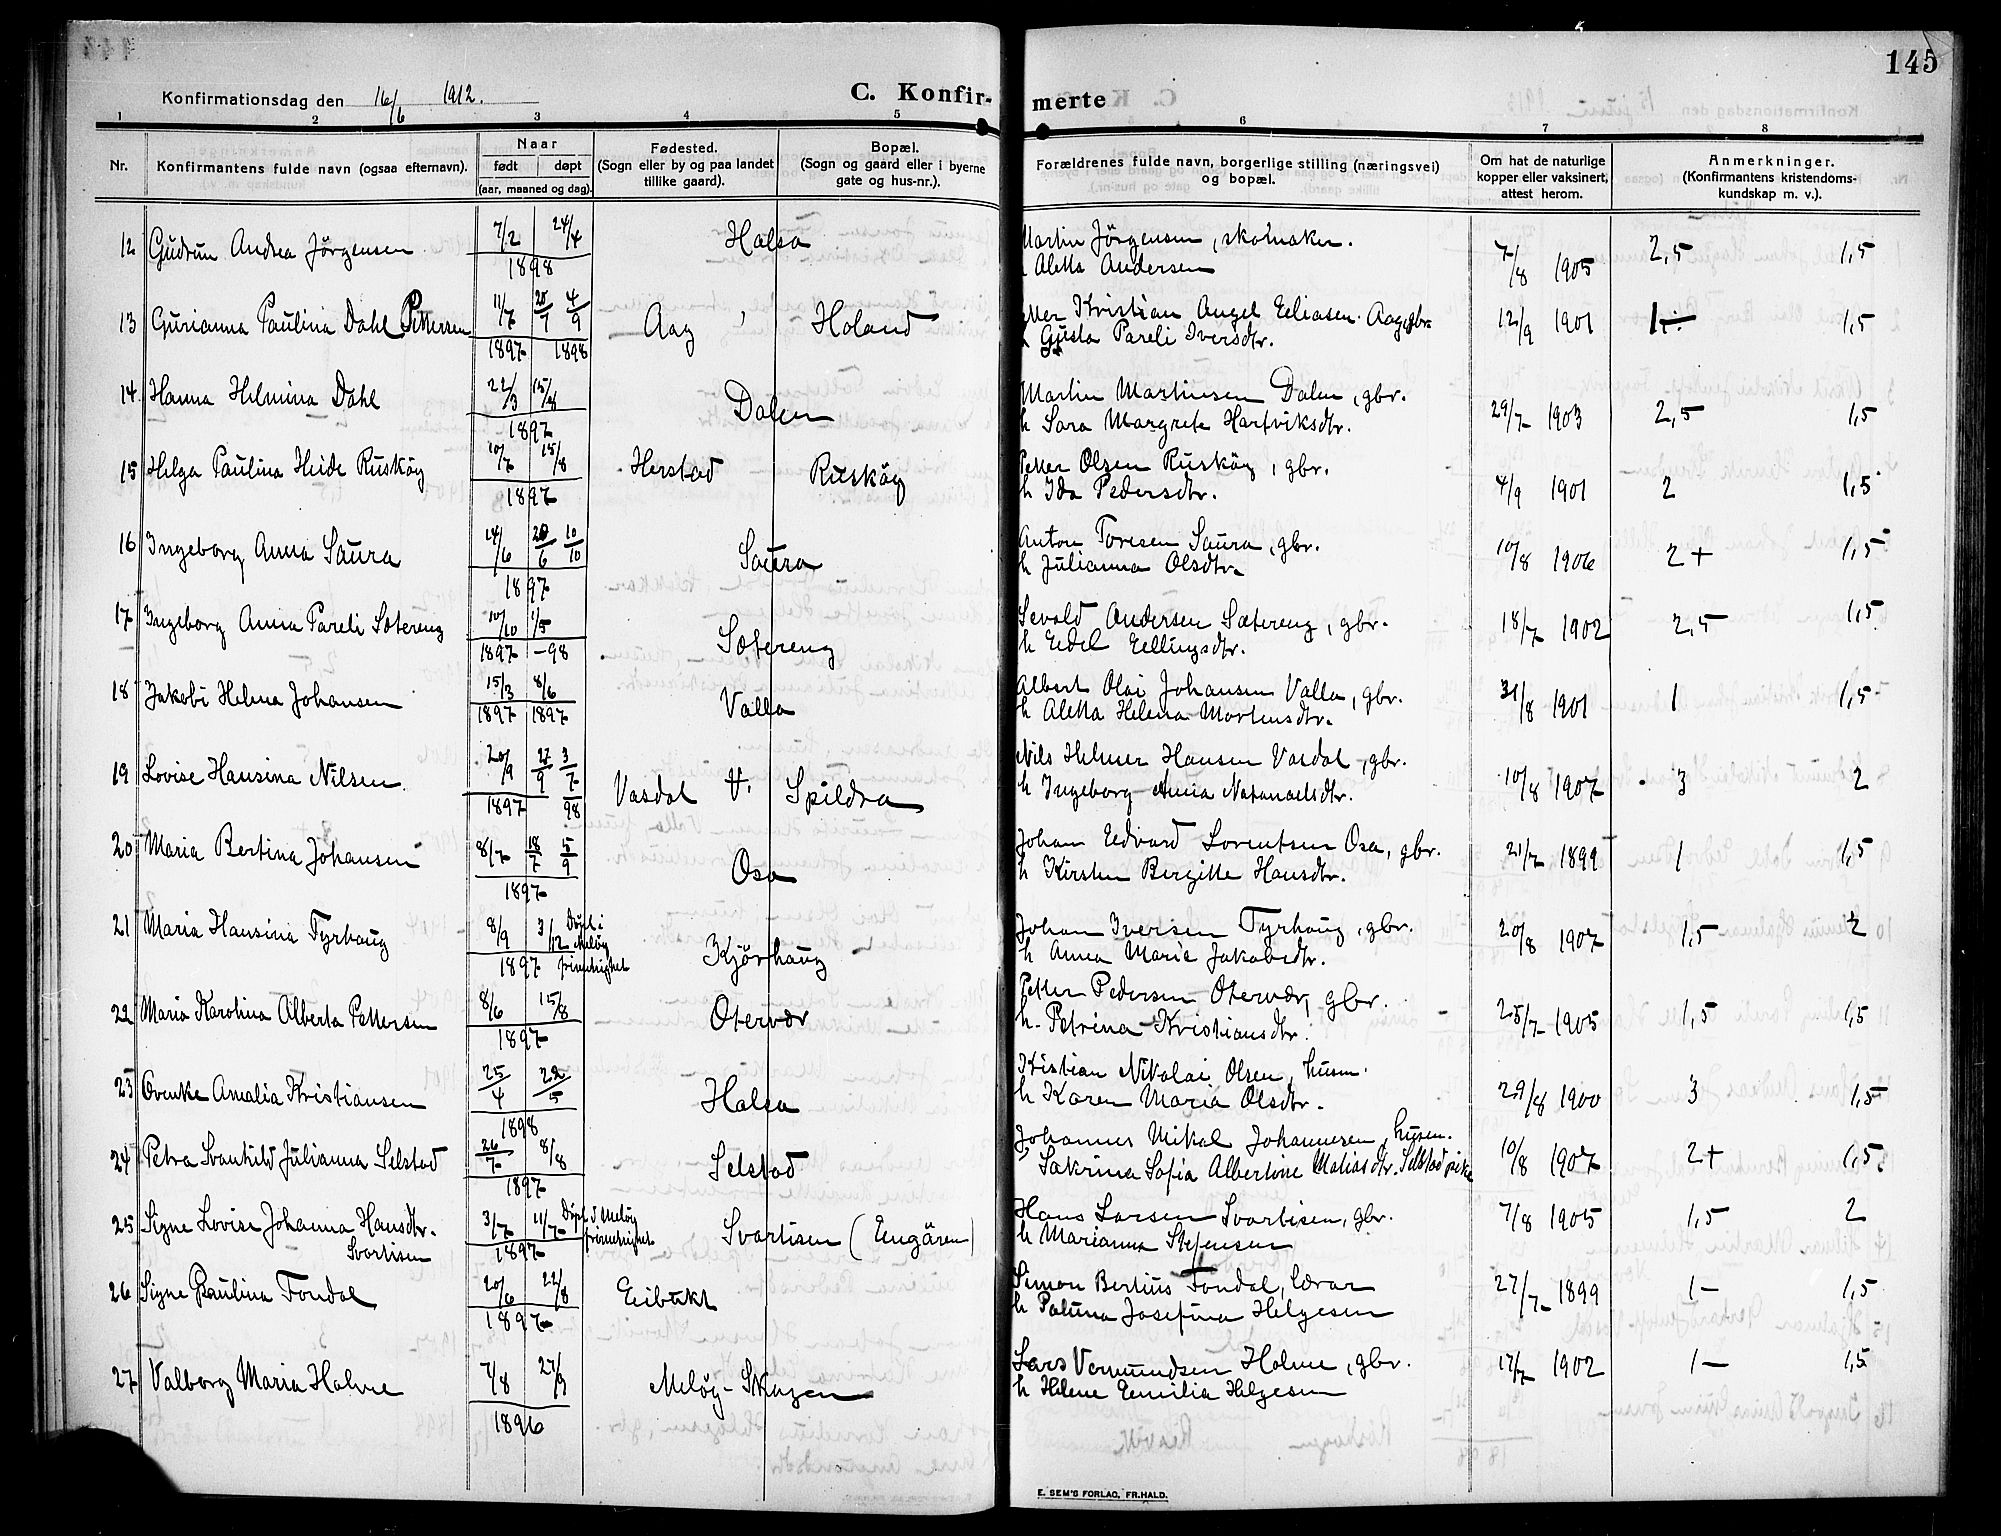 145
Konfirmationsdag den 16/6 1912.
C. Konfirmerte
1 2 3 4 5 6 7 8
Nr. Konfirmantens fulde navn (ogsaa efternavn). Naar født døpt (aar, maaned og dag). Fødested. (Sogn eller by og paa landet tillike gaard). Bopæl. (Sogn og gaard eller i byerne gate og hus-nr.). Forældrenes fulde navn, borgerlige stilling (næringsvei) og bopæl. Om hat de naturlige kopper eller vaksinert, attest herom. Anmerkninger. (Konfirmantens kristendoms-kundskap m. v.).
12 Gudrun Andrea Jörgensen 7/2 24/4 Halsa Martin Jörgensen, skomaker. 7/8 1905 2,5 1,5
1898 Aletta Andersen
13 Gurianna Paulina Dahl Pettersen 11/7 20/7 4/9 Aag Holand Kristian Angel Eeliasen Aag, gbr. 12/9 1901 1 1,5
1897 1898 Gusta Pareli Iversdtr.
14 Hanna Helmina Dahl 22/3 15/8 Dalen Martin Martinusen Dalen, gbr. 29/7 1903 2,5 1,5
1897 h Sara Margrete Hartviksdtr.
15 Helga Paulina Heide Rusköy 10/7 15/8 Herstad Rusköy Petter Olsen Rusköy, gbr. 4/9 1901 2 1,5
1897 h Ida Pedersdtr.
16 Ingeborg Anna Saura 14/6 20/6 10/10 Saura Anton Toresen Saura, gbr. 10/8 1906 2+ 1,5
1897 h Julianna Olsdtr.
17 Ingeborg Anna Pareli Sætereng 10/10 1/5 Sætereng Sevald Andersen Sætereng, gbr. 18/7 1902 2,5 1,5
1897 -98 h Eedel Eellingsdtr.
18 Jakobi Helena Johansen 15/3 8/6 Valla Albert Olai Johansen Valla, gbr. 31/8 1901 1 1,5
1897 1897 h Aletta Helena Mortensdtr.
19 Lovise Hansina Nilsen 20/9 27/9 3/7 Vasdal Spildra Nils Helmer Hansen Vasdal, gbr. 10/8 1907 3 2
1897 98 h Ingeborg Anna Natanaelsdtr.
20 Maria Bertina Johansen 8/7 18/7 5/9 Osa Johan Eedvard Lorentsen Osa, gbr. 21/7 1899 1 1,5
1897 h Kirsten Bergitte Hansdtr.
21 Maria Hansina Tyrhaug 8/9 3/12 Döpt i Melöy frimenighet Kjörhaug Johan Iversen Tyrhaug, gbr. 20/8 1907 1,5 2
1897 h Anna Maria Jakobsdtr.
22 Maria Karolina Alberta Pettersen 8/6 15/8 Otervær Petter Pedersen Otervær, gbr. 25/7 1905 1,5 1,5
1897 h. Petrina Kristiansdtr.
23 Ovenke Amalia Kristiansen 25/4 22/5 Halsa Kristian Nikolai Olsen, husm. 29/8 1900 3 1,5
1898 h Karen Maria Olsdtr.
24 Petra Svanhild Julianna Selstad 26/7 8/8 Selstad Johannes Mikal Johannesen, husm. 10/8 1907 2+ 1,5
1897 Sakrina Sofia Albertine Matiasdtr. Selstad pike
25 Signe Lovise Johanna Hansdtr. Svartisen 3/7 11/7 Döpt i Melöy frimenighet Svartisen (Eengären) Hans Larsen Svartisen, gbr. 7/8 1905 1,5 2
1897 h Marianna Stefensen
26 Signe Paulina Fondal 20/6 22/8 Eeibukt Simon Bertius Fondal, lærar 27/7 1899 1- 1,5
1897 h Paluna Josefina Helgesen
27 Valborg Maria Holme 7/8 27/9 Melöy-Skagen Lars Vemundsen Holme, gbr. 17/7 1902 1- 1,5
1896 h Helene Eemilia Helgesen
E. SEM'S FORLAG, FR.HALD.